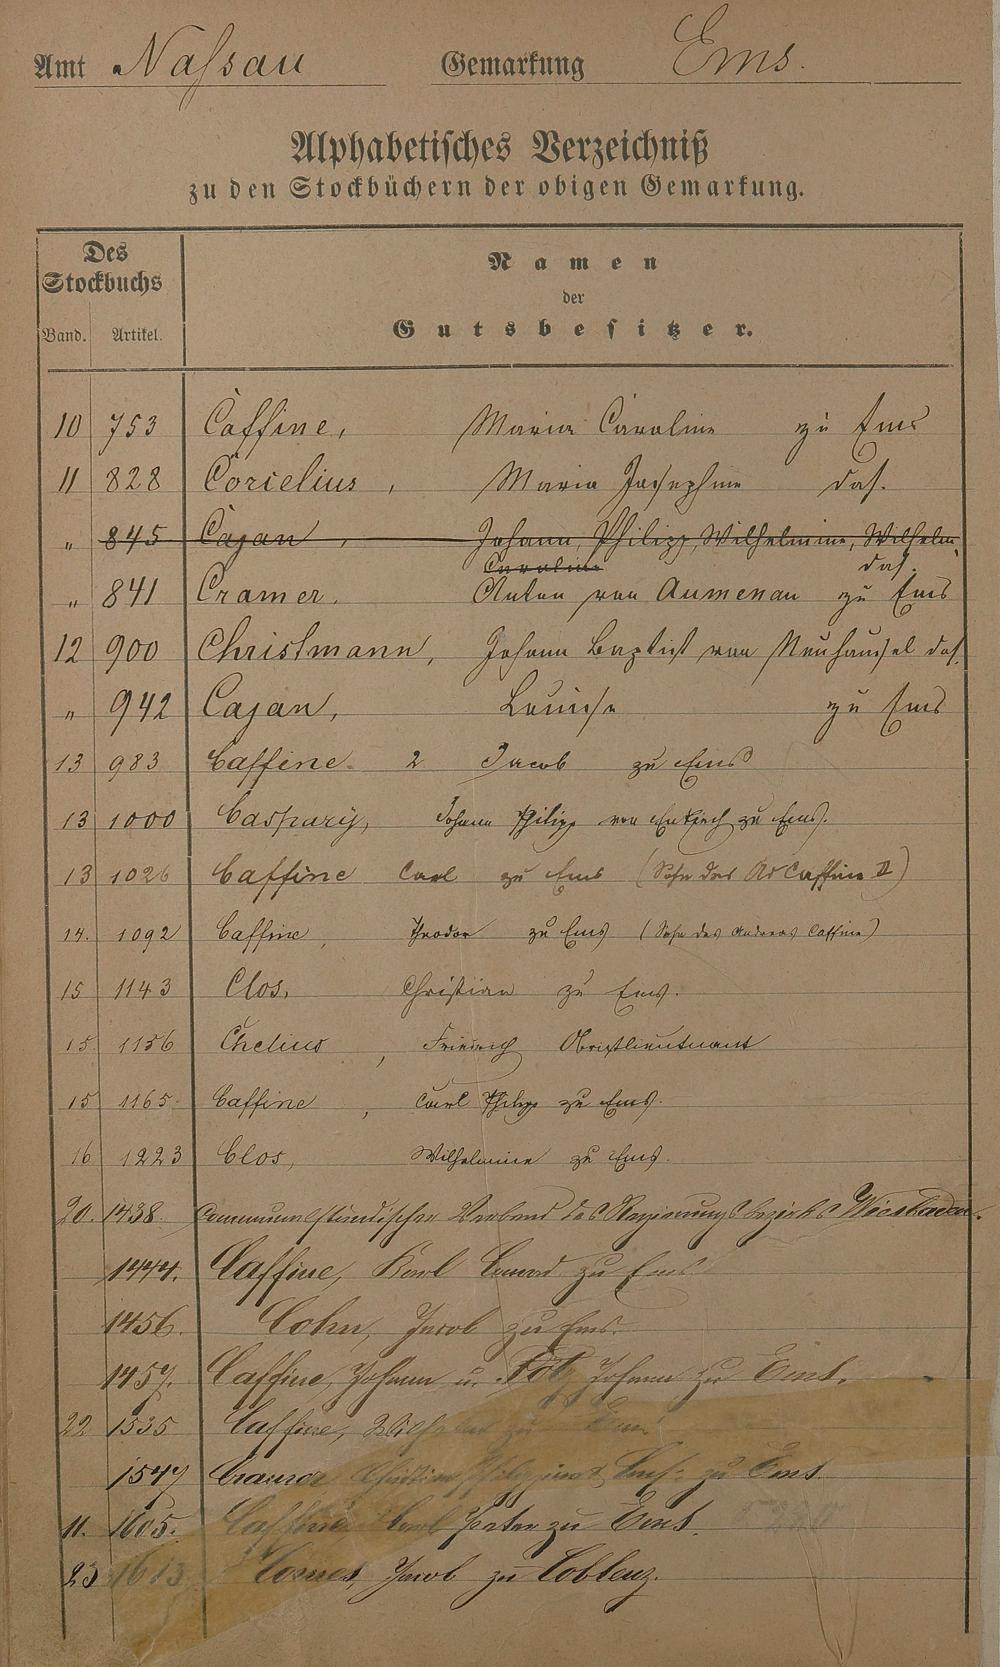 Amt Nassau Gemarkung Ems.
Alphabetisches Verzeichniß
zu den Stockbüchern der obigen Gemarkung.
Des Stockbuchs
Namen
der
Gutsbesitzer.
Band. Artikel.
10 753 Caffine, Maria Caroline zu Ems
11 828 Corcelius, Maria Josephine das.
" 845 Cajan, Johann, Philipp, Wilhelmine, Wilhelm,
Caroline das.
" 841 Cramer. Anton von Aumenau zu Ems
12 900 Christmann, Johann Baptist von Neuhäusel das.
" 942 Cajan, Louise zu Ems
13 983 Caffine 2 Jacob zu Ems
13 1000 Caspary, Johann Philipp von Enkirch zu Ems.
13 1026 Caffine Carl zu Ems (Sohn des Ad Caffine II)
14. 1092 Caffine, Theodor zu Ems (Sohn des Andreas Caffine)
15 1143 Clos, Christian zu Ems.
15. 1156 Chelius, Friedrich Obristlieutnant
15 1165 Caffine, Carl Philipp zu Ems.
16 1223 Clos, Wilhelmine zu Ems.
20. 1438. Communalständischer Verband des Regierungsbezirks Wiesbaden.
1444. Caffine, Karl Conrad zu Ems
1456. Cohn, Jacob zu Ems.
1457. Caffine, Johann u. Johann zu Ems.
22 1535 Caffine, zu Ems
1547 zu Ems
11. 1605. Caffine, Carl Peter zu Ems.
23 1613 Comes, Jacob zu Coblenz.